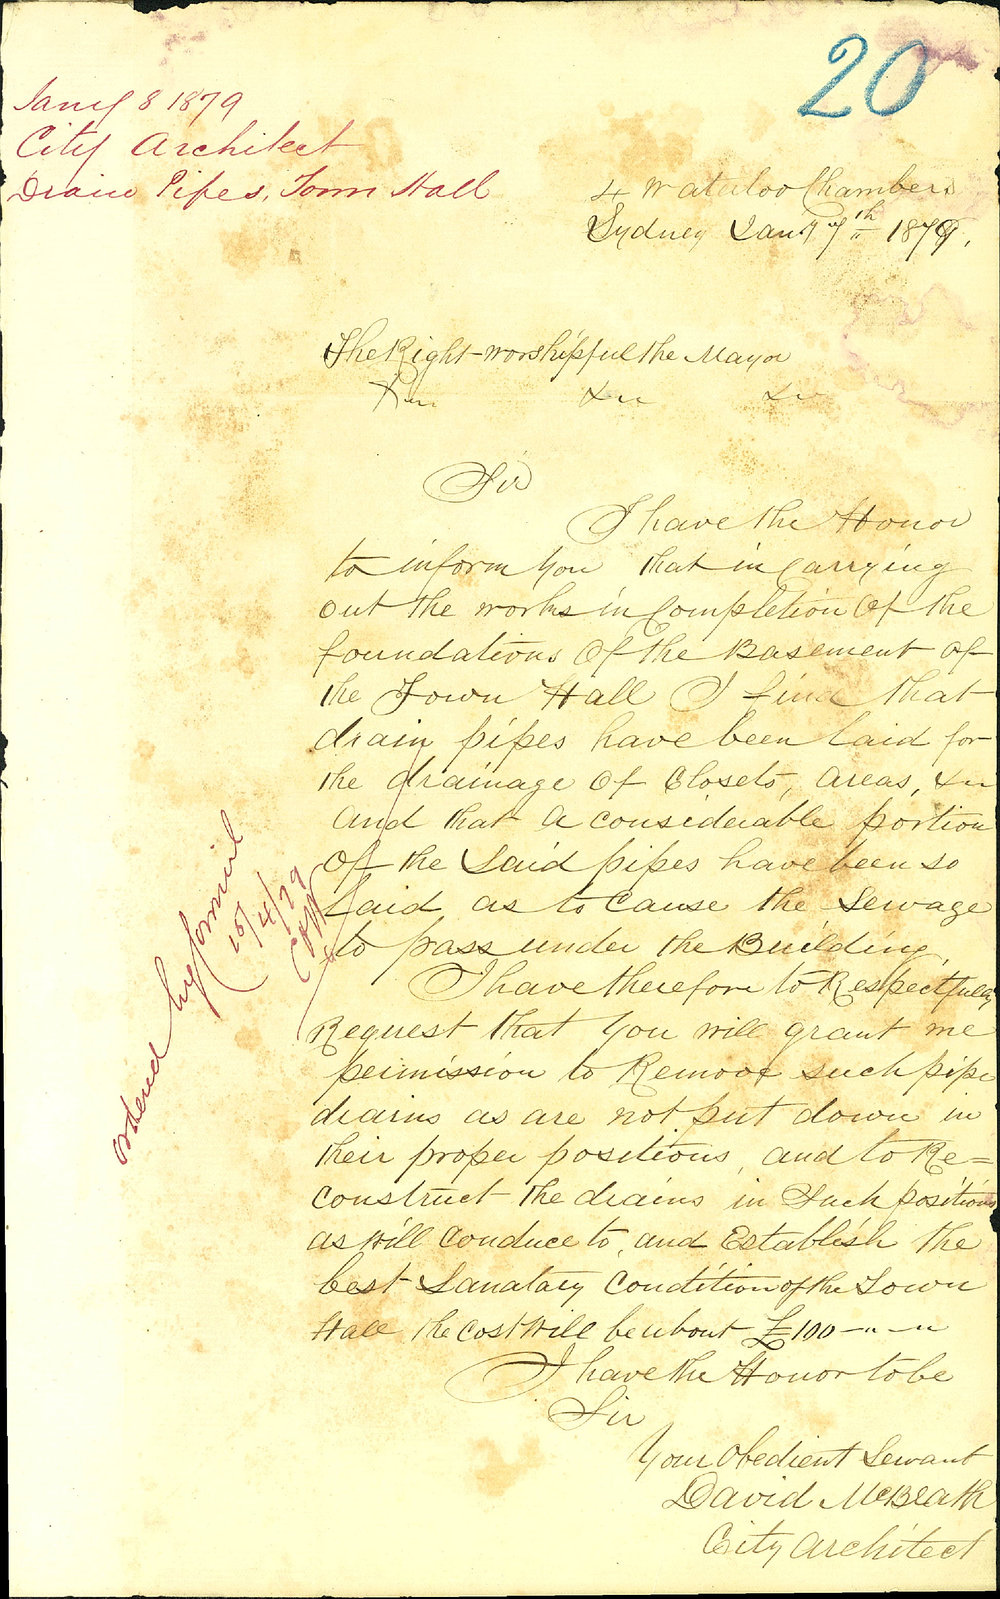 20
Jany 8 1879
City Architect
Drain Pipes, Town Hall
4 Waterloo Chambers
Sydney Jany 7th 1879.
The Right Worshipful the Mayor
&c &c &c
Sir
I have the Honor
to inform You that in Carrying
out the works in Completion Of the
foundations Of the Basement of
the Town Hall I find that
drain pipes have been laid for
the drainage Of Closets, Areas, &c
And that a considerable portion
Of the Said pipes have been so
laid as to Cause the Sewage
to pass under the Building.
I have therefore to Respectfully
Request that You will grant me
permission to Remove such pipe
drains as are not put down in
their proper positions, and to Re=
construct the drains in Such positions
as Will Conduce to, and Establish the
best Sanatary Condition of the Town
Hall, the Cost Will be about £100 — " — "
I have the Honor to be
Sir
Your Obedient Servant
David McBeath
City Architect
Ordered
15/4/79